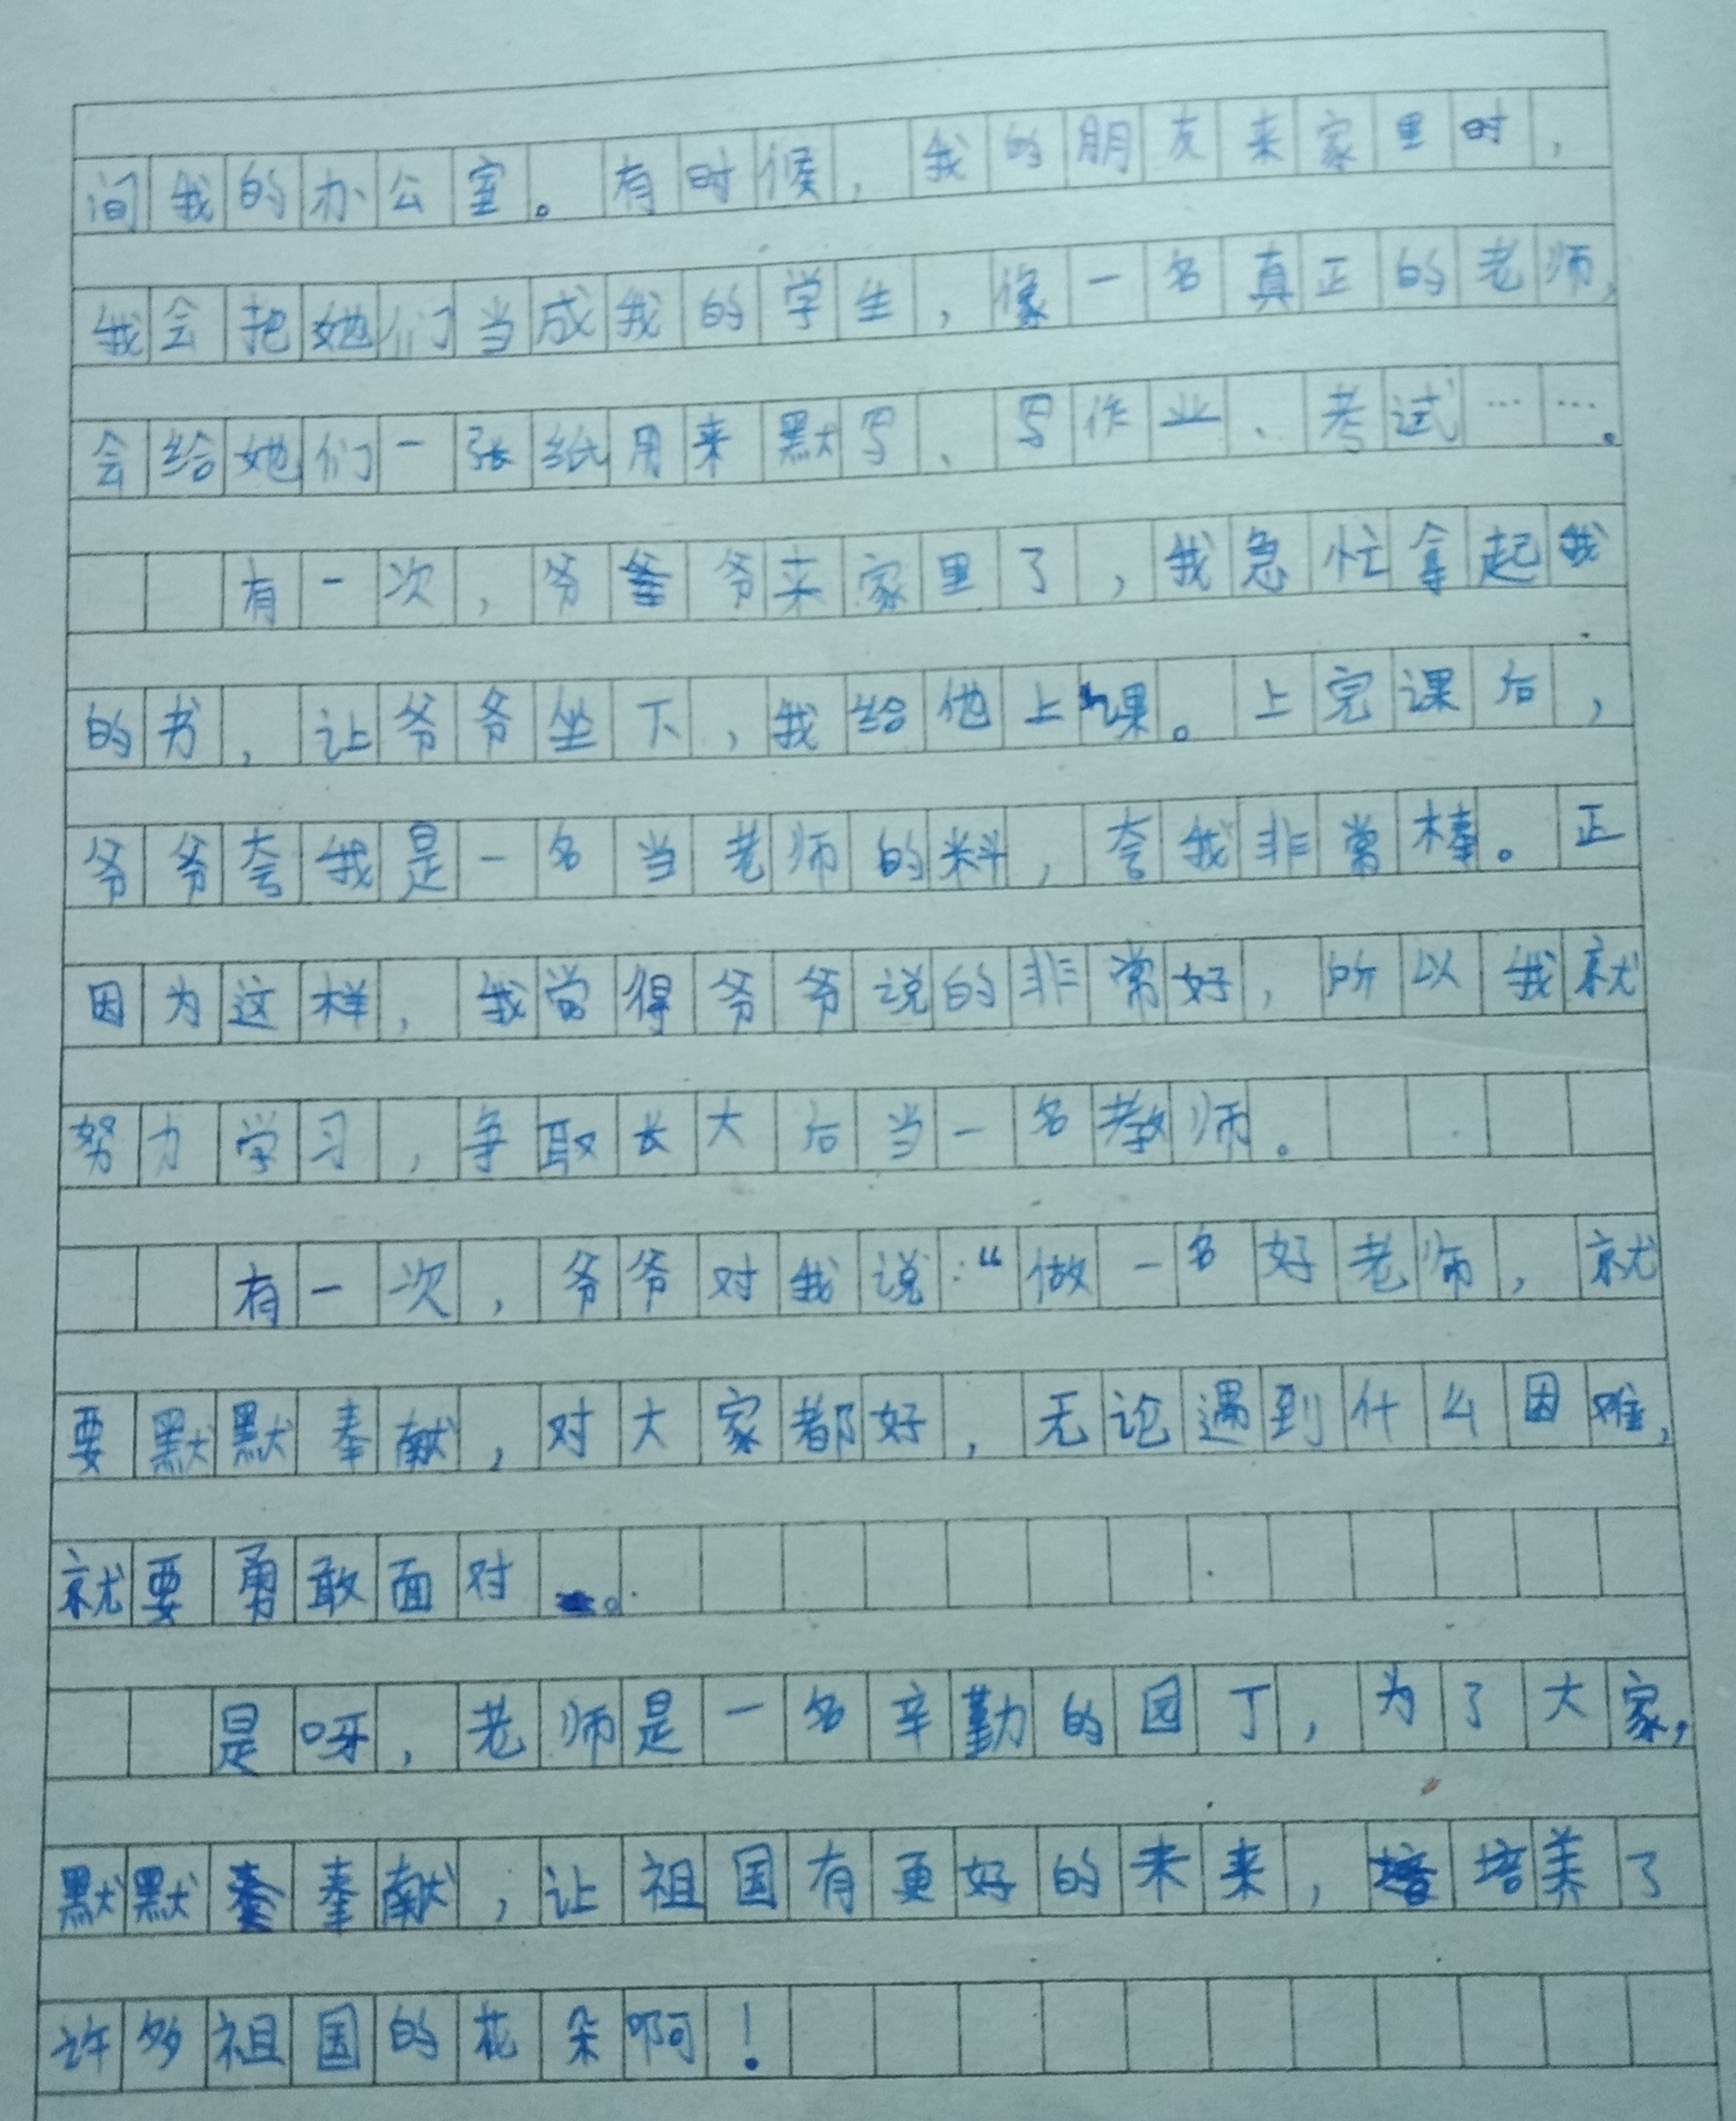 间我的办公室。有时候，我的朋友来家里时，
我会把她们当成我的学生，像一名真正的老师，
会给她们一张纸用来默写、写作业、考试……。
有一次，爷爷来家里了，我急忙拿起我
的书，让爷爷坐下，我给他上课。上完课后，
爷爷夸我是一名当老师的料，夸我非常棒。正
因为这样，我觉得爷爷说的非常好，所以我就
努力学习，争取长大后当一名教师。
有一次，爷爷对我说：“做一名好老师，就
要默默奉献，对大家都好，无论遇到什么困难，
就要勇敢面对。
是呀，老师是一名辛勤的园丁，为了大家，
默默奉献，让祖国有更好的未来，培养了
许多祖国的花朵啊！